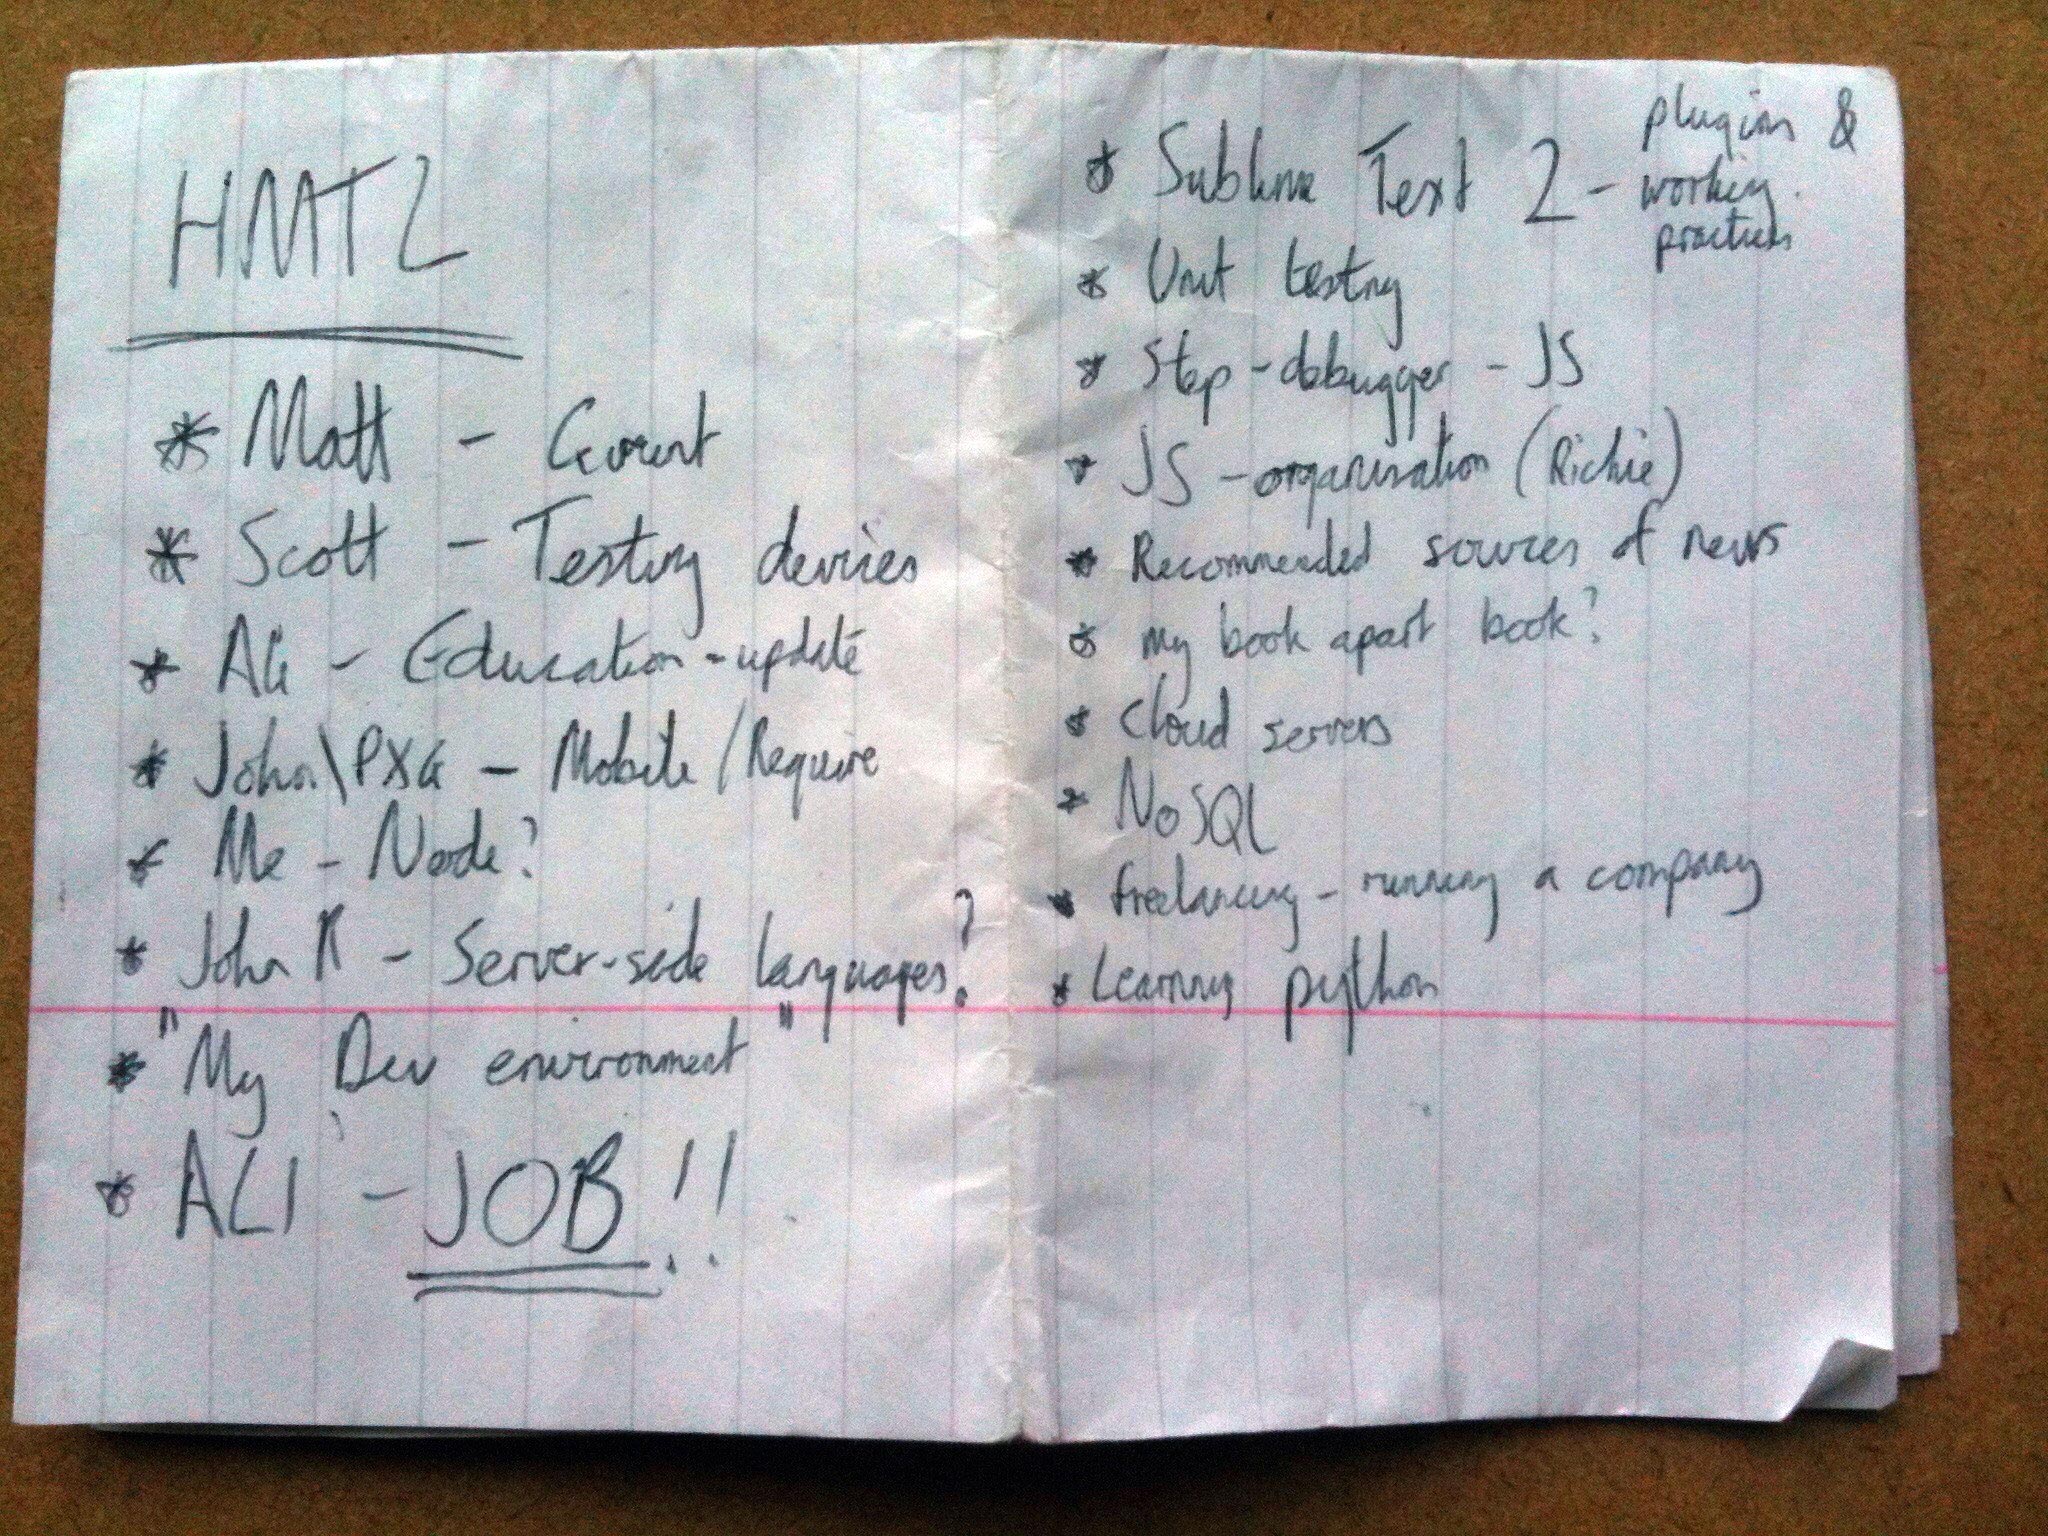 HMTL
* Matt - Current
* Scott - Testing devices
* Ali - Education - update
* John\PXG - Mobile / Require
* Me - Node?
* John K - Server-side languages?
* "My Dev environment"
* ALI - JOB!!
* Sublime Text 2 - plugins &
working
practices
* Unit testing
* Step-debugger - JS
* JS - organisation (Richie)
* Recommended sources of news
* my book apart book?
* Cloud servers
* NoSQL
* freelancing - running a company
* Learning python